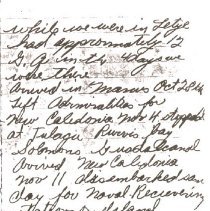 while we were in Leyte
had approximately 12
G.Q. in the 4 days we
were there
arrived in Manus Oct 28th
left Admiralties for
New Caledonia Nov 4 stopped
at Tulagi Purvis Bay
Solomons Guadalcanal
Arrived New Caledonia
Nov 11 disembarked same
day for Naval Receiving
Station